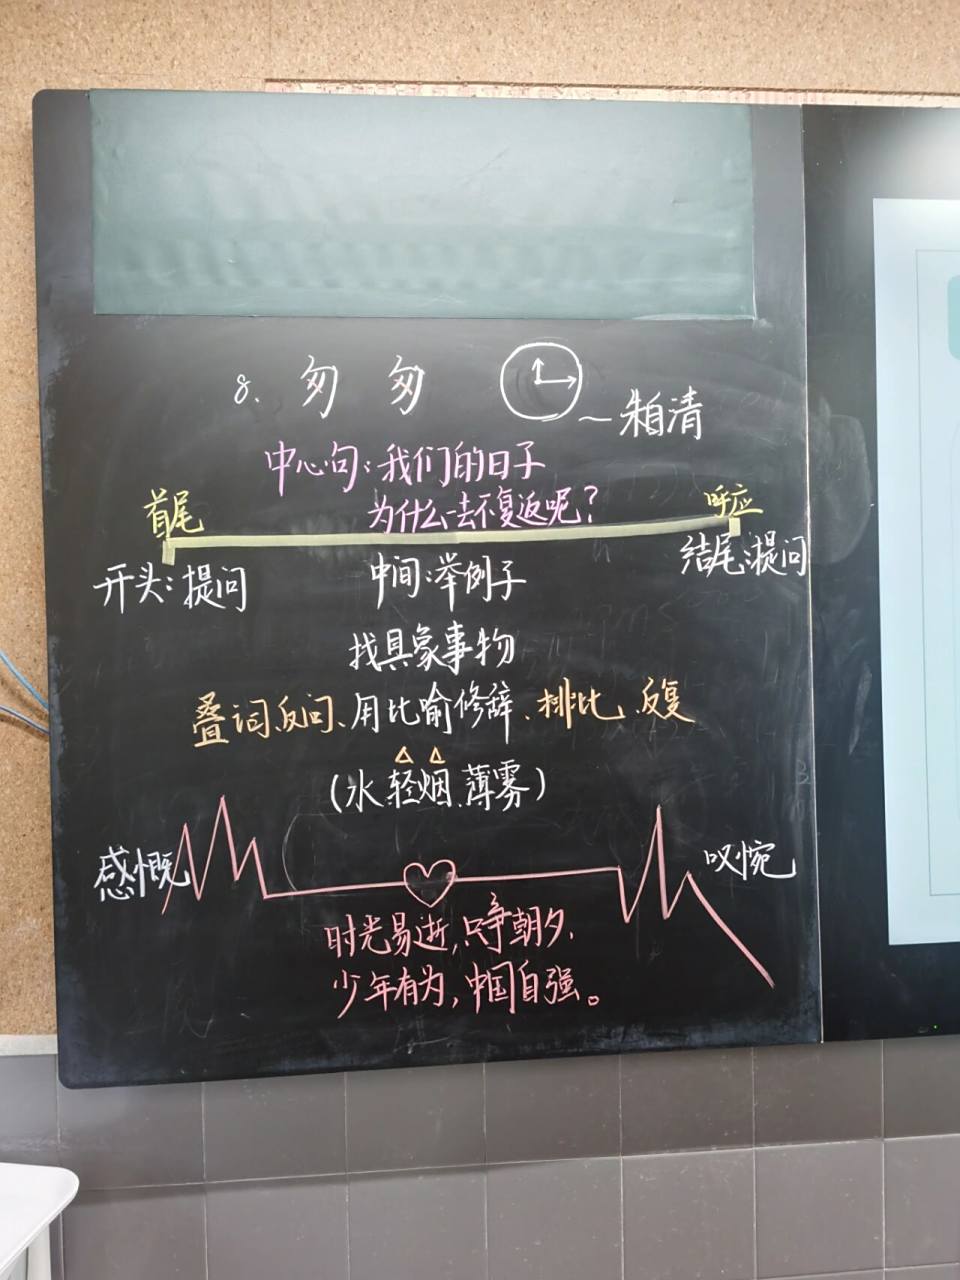 8. 匆匆
~朱自清
中心句:我们的日子
为什么一去不复返呢?
首尾 呼应
开头:提问 中间:举例子 结尾:提问
找具象事物
叠词、反问、用比喻修辞、排比、反复
(水、轻烟、薄雾)
感慨 叹惋
时光易逝,只争朝夕,
少年有为,中国自强。